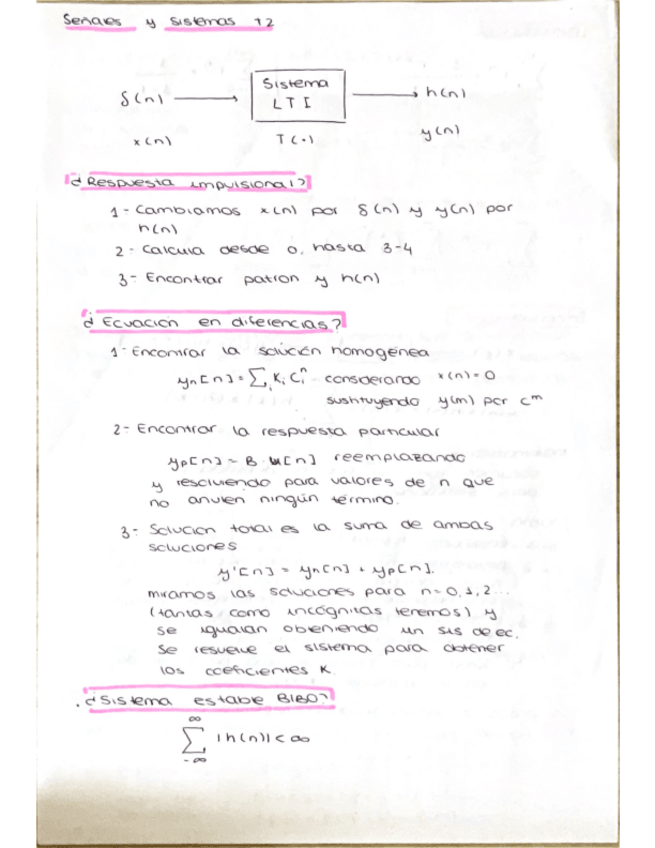 Señales y Sistemas T2
δ(n) → Sistema LTI → h(n)
x(n) T(·) y(n)
¿Respuesta impulsional?
1- Cambiamos x(n) por δ(n) y y(n) por
h(n)
2- Calcula desde 0, hasta 3-4
3- Encontrar patron y h(n)
¿Ecuación en diferencias?
1- Encontrar la solución homogénea
yh[n] = Σi Ki Ci^n considerando x(n)=0
sustituyendo y(m) por c^m
2- Encontrar la respuesta particular
yp[n] = B·u[n] reemplazando
y resolviendo para valores de n que
no anulen ningún término.
3- Solución total es la suma de ambas
soluciones
y'[n] = yh[n] + yp[n].
miramos las soluciones para n=0,1,2...
(tantas como incógnitas tenemos) y
se igualan obteniendo un sis de ec.
Se resuelve el sistema para obtener
los coeficientes K.
. ¿Sistema estable BIBO?
∞
Σ |h(n)| < ∞
-∞